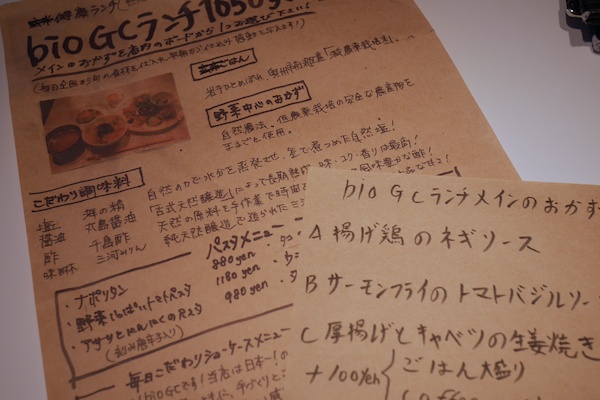 玄米健康ランチ
bio GCランチ1050yen
メインのおかずを店内のボードから1つお選び下さい!
(毎日全国から旬の食材を仕入れ
玄米ごはん
岩手ひとめぼれ、奥州
減農薬栽培米
野菜中心のおかず
自然農法、低農薬栽培の安全な農産物を
までも使用。
こだわり調味料
塩 海の精
醤油
酢 千鳥酢
味醂 三河みりん
自然の力で水分を蒸発させ、釜で煮つめた自然塩!
「古式天然醸造」によって長期熟成 味・コク・香りは最高!
天然の原料を手作業で時間を 風味豊かな酢!
純天然醸造で造られた
パスタメニュー
880yen
1180yen
980yen
・ナポリタン
・野菜いっぱいトマトパスタ
・アサリとにんにくのパスタ
毎日こだわりショーケースメニュー
bio GCです!当店は日本一!の
bio GCランチメインのおかず
A 揚げ鶏のネギソース
B サーモンフライのトマトバジルソー
C 厚揚げとキャベツの生姜焼き
+100yen
ごはん大盛り